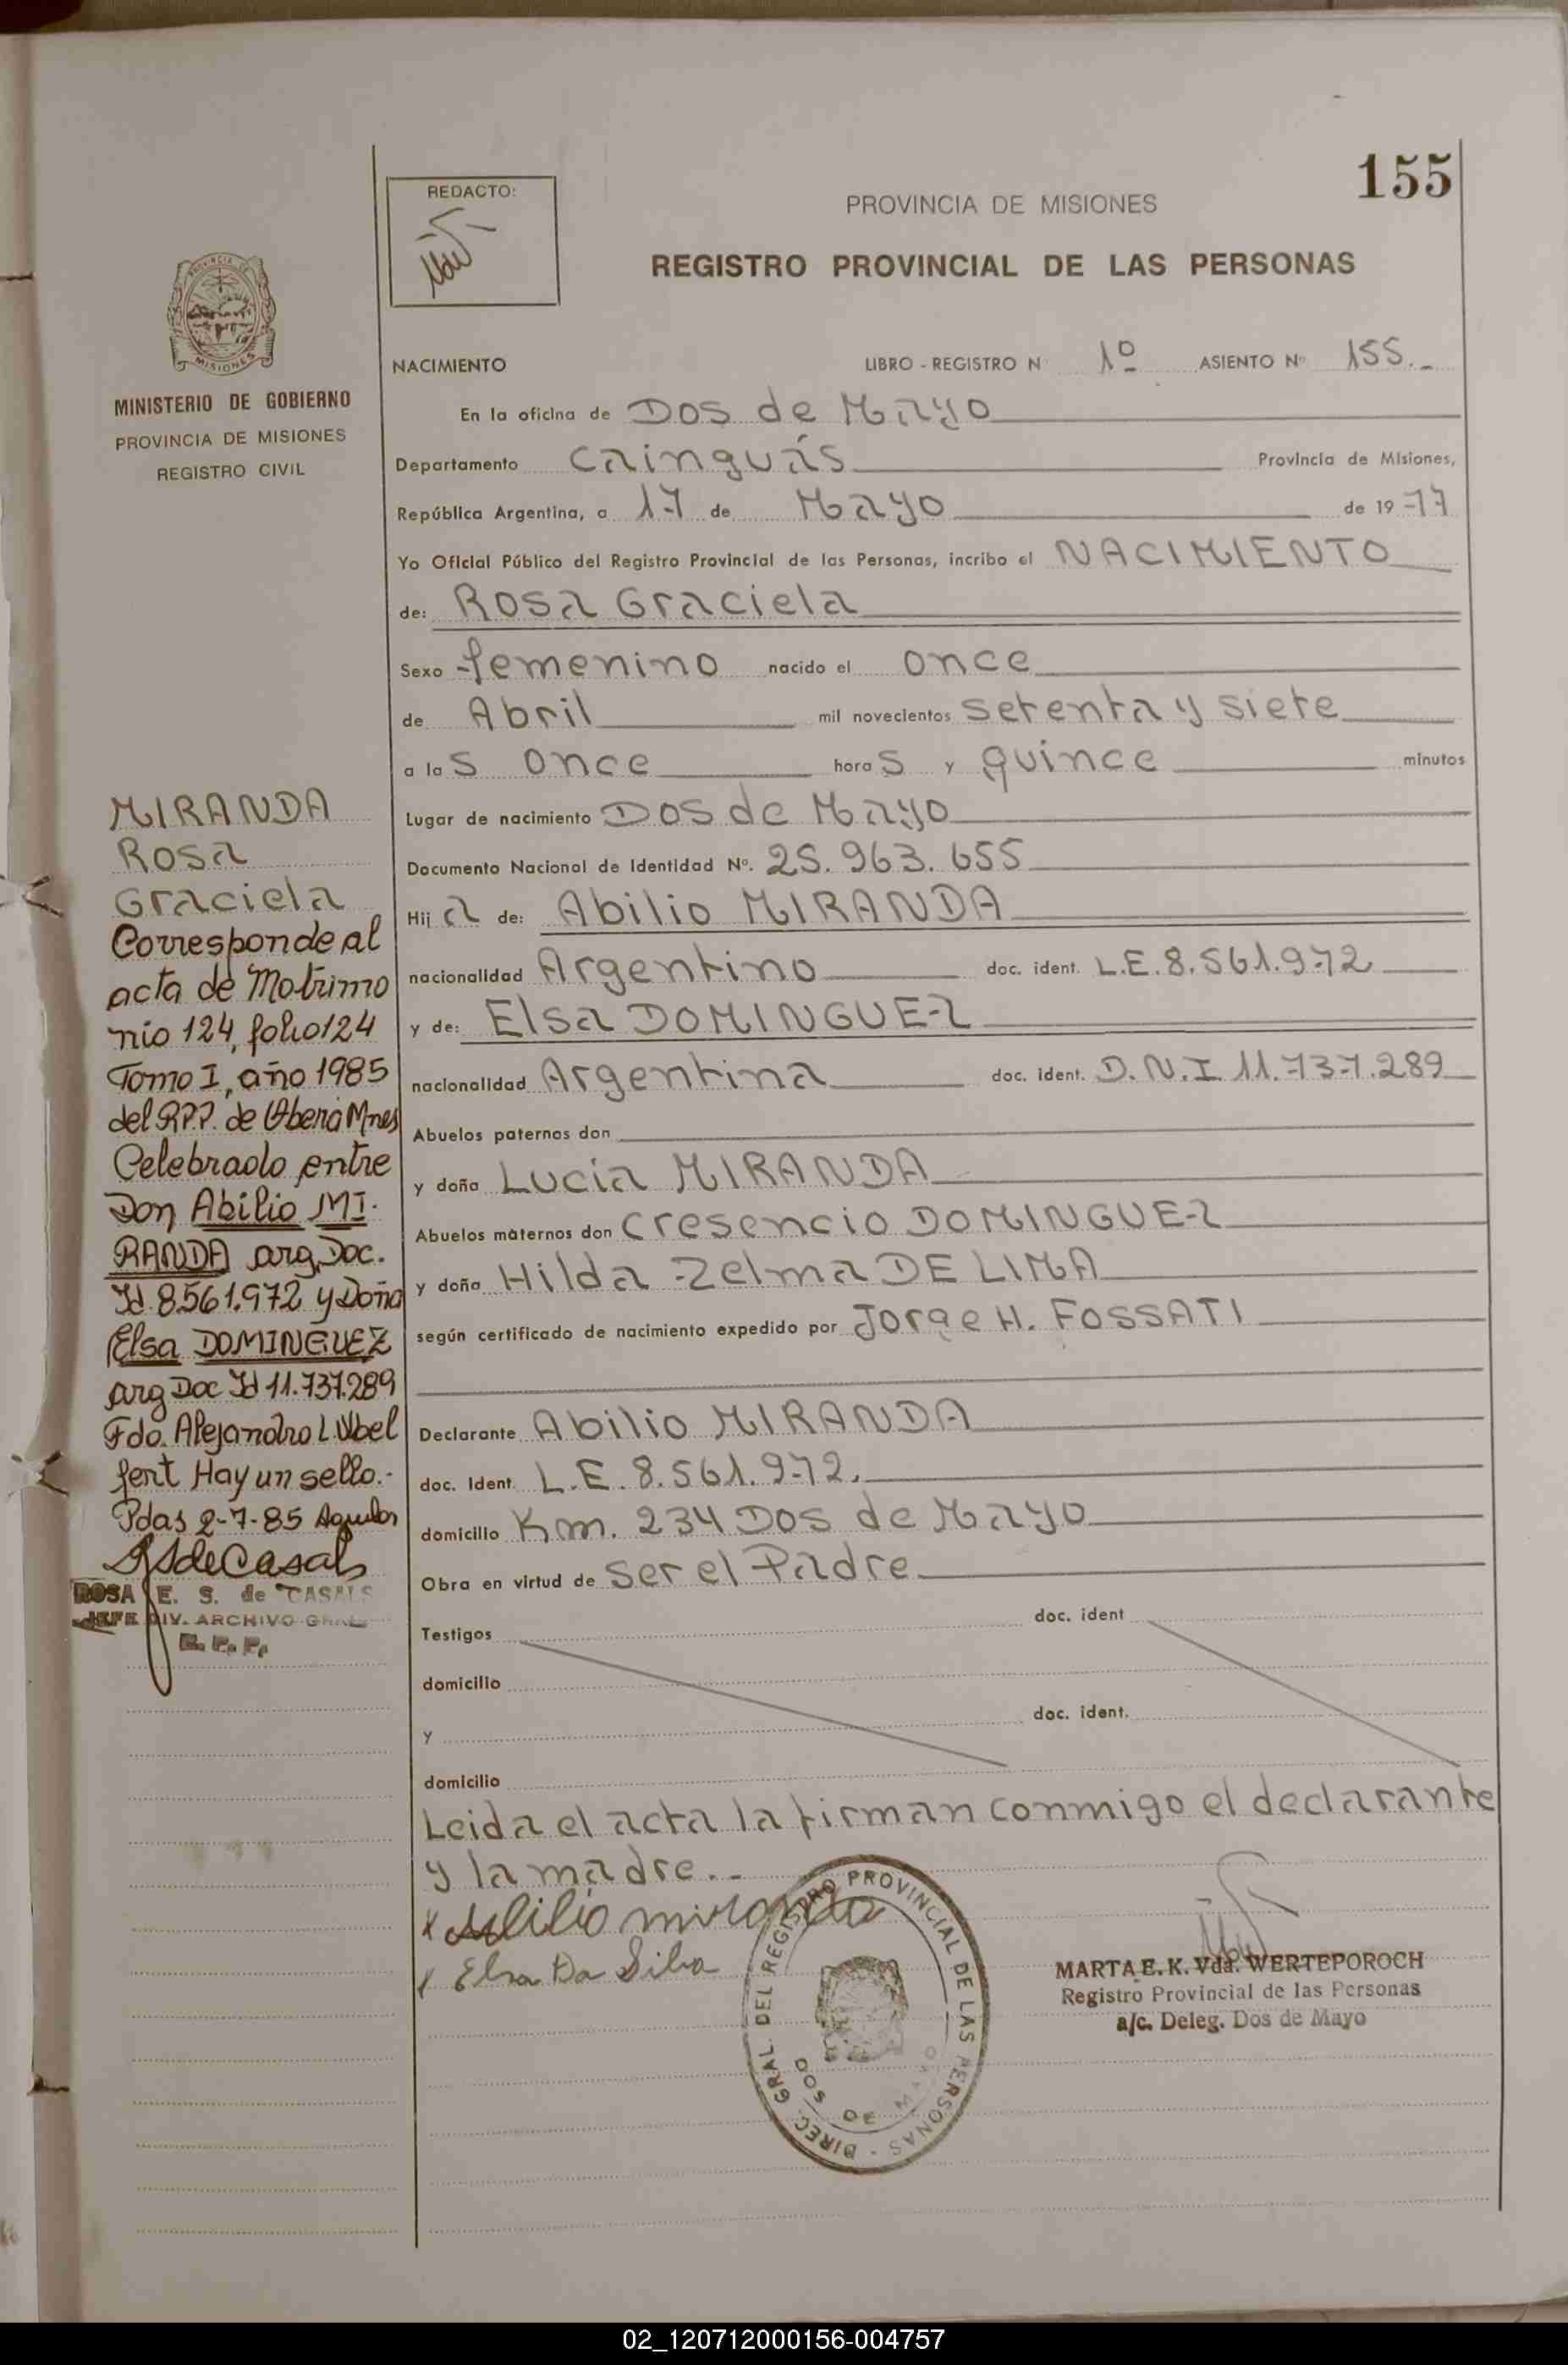 155
REDACTO:
PROVINCIA DE MISIONES
REGISTRO PROVINCIAL DE LAS PERSONAS
PROVINCIA DE
MISIONES
MINISTERIO DE GOBIERNO
PROVINCIA DE MISIONES
REGISTRO CIVIL
NACIMIENTO LIBRO - REGISTRO N° 1º ASIENTO Nº 155.-
En la oficina de Dos de Mayo
Departamento Cainguás Provincia de Misiones,
República Argentina, a 17 de Mayo de 1977
Yo Oficial Público del Registro Provincial de las Personas, incribo el NACIMIENTO
de: Rosa Graciela
Sexo femenino nacido el once
de Abril mil novecientos setenta y siete
a las once horas y quince minutos
Lugar de nacimiento Dos de Mayo
Documento Nacional de Identidad Nº. 25.963.655
Hija de: Abilio MIRANDA
nacionalidad Argentino doc. ident. L.E. 8.561.972
y de: Elsa DOMINGUEZ
nacionalidad Argentina doc. ident. D.N.I 11.737.289
Abuelos paternos don
y doña Lucia MIRANDA
Abuelos maternos don Cresencio DOMINGUEZ
y doña Hilda Zelma DE LIMA
según certificado de nacimiento expedido por Jorge H. FOSSATI
Declarante Abilio MIRANDA
doc. Ident. L.E. 8.561.972.
domicilio Km. 234 Dos de Mayo
Obra en virtud de ser el Padre
Testigos doc. ident
domicilio
y doc. ident.
domicilio
Leida el acta la firman conmigo el declarante
y la madre.-
x Abilio miranda
x Elsa Da Silva
DIREC. GRAL. DEL REGISTRO PROVINCIAL DE LAS PERSONAS -
DOS DE MAYO
MARTA E. K. Vda. WERTEPOROCH
Registro Provincial de las Personas
a/c. Deleg. Dos de Mayo
MIRANDA
Rosa
Graciela
Corresponde al
acta de Matrimo
nio 124, folio 124
Tomo I, año 1985
del R.P.P. de Oberá Mnes
Celebrado entre
Don Abilio MI-
RANDA arg. Doc.
Id 8.561.972 y Doña
Elsa DOMINGUEZ
arg Doc Id 11.737.289
Fdo. Alejandro L.
Hay un sello.-
Pdas 2-7-85
de Casals
ROSA E. S. de CASALS
JEFE DIV. ARCHIVO GRAL
R. P. P.
02_120712000156-004757